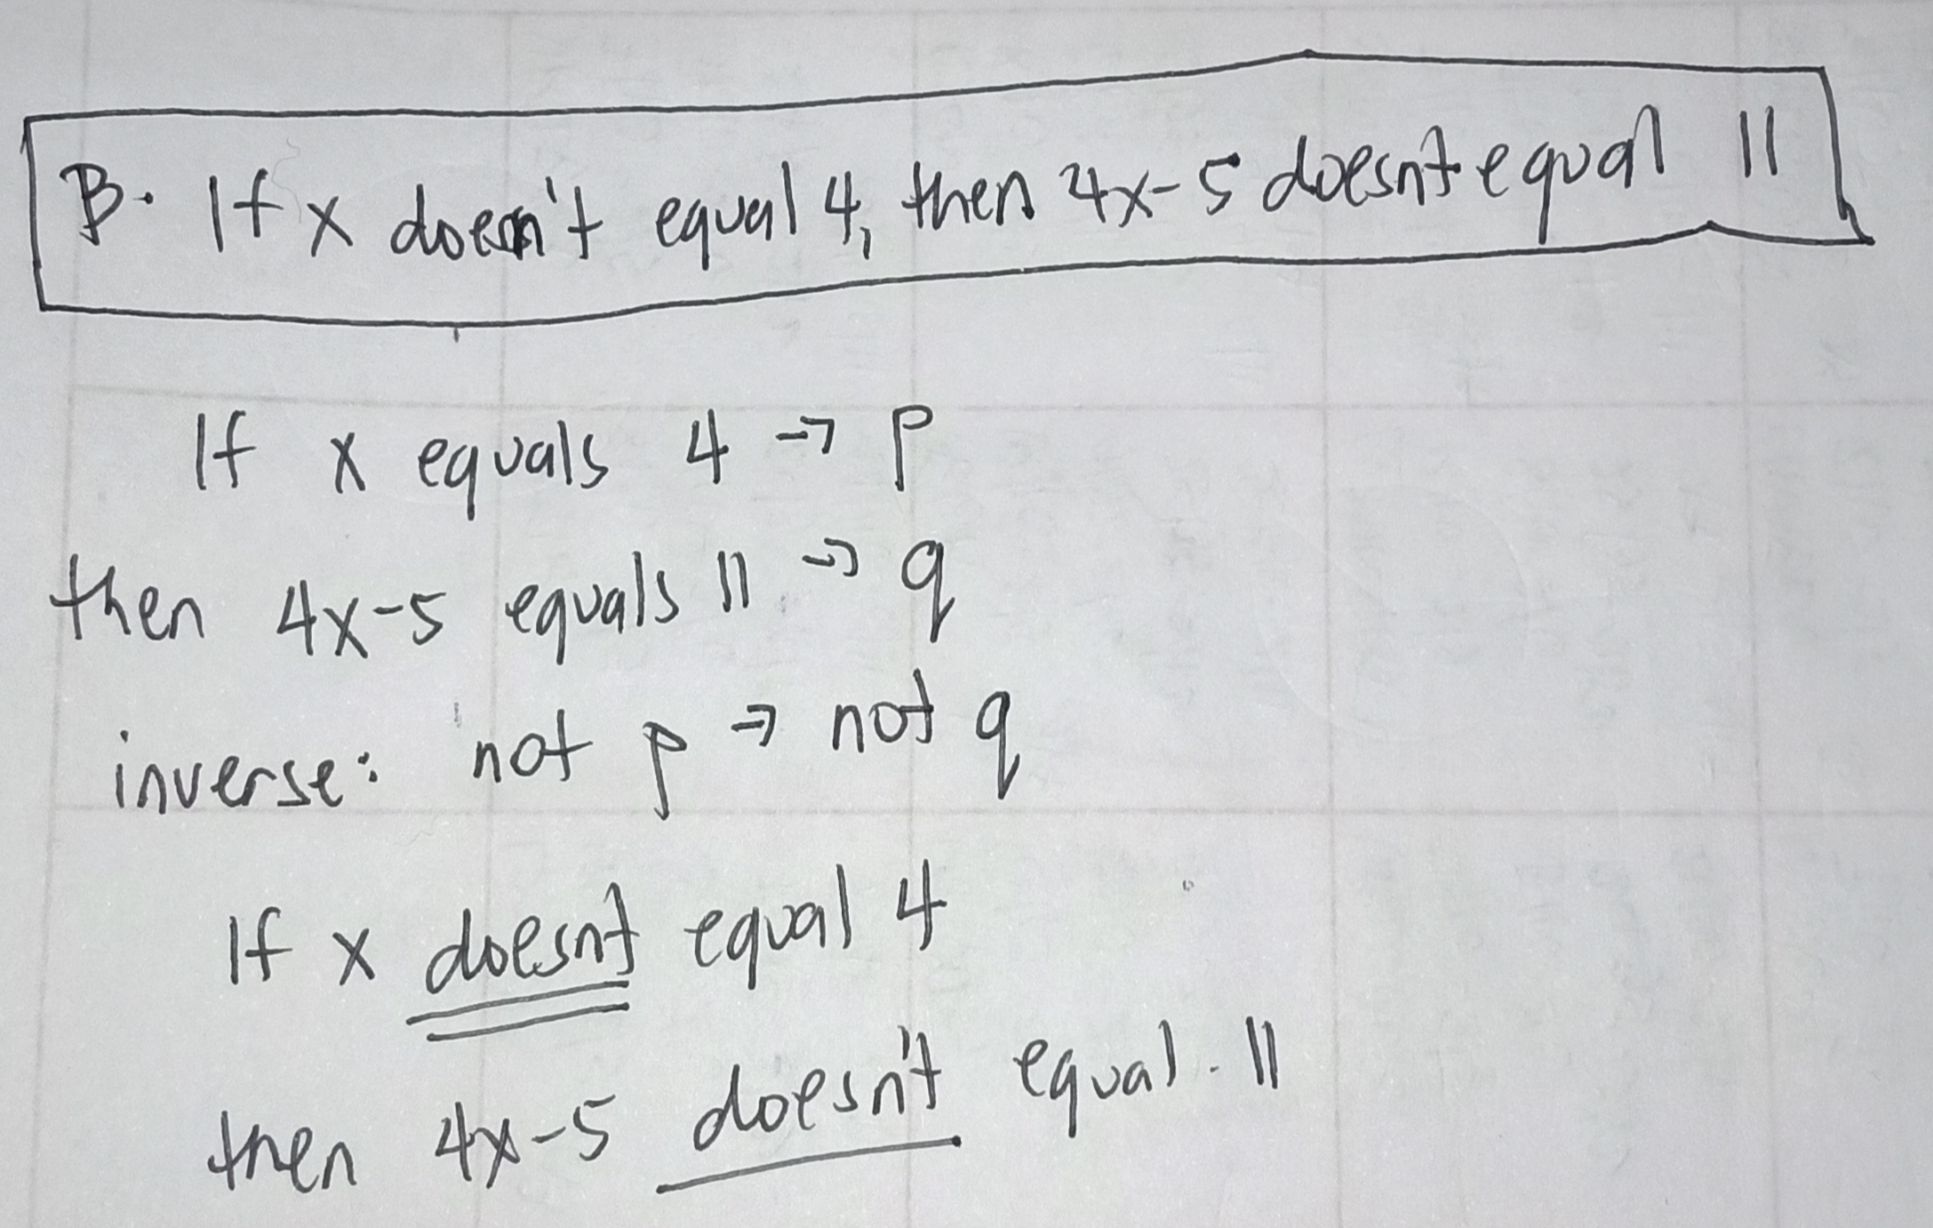 B. If x doesn't equal 4, then 4x-5 doesnt equal 11
If x equals 4 → p
then 4x-5 equals 11 → q
inverse: not p → not q
If x doesnt equal 4
then 4x-5 doesn't equal. 11